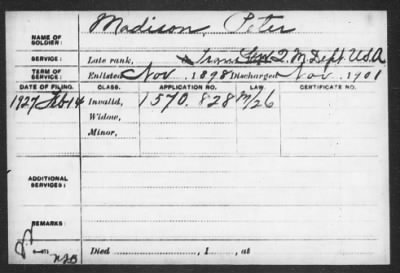 NAME OF SOLDIER: Madison, Peter
SERVICE: Late rank, Q. M. Dept. U.S.A
TERM OF SERVICE: Enlisted Nov. 1898 Discharged Nov. 1901
DATE OF FILING. CLASS. APPLICATION NO. LAW. CERTIFICATE NO.
1927 Feb 14 Invalid, 1570.828 M/26
Widow,
Minor,
ADDITIONAL SERVICES:
REMARKS:
Died , 1 , at